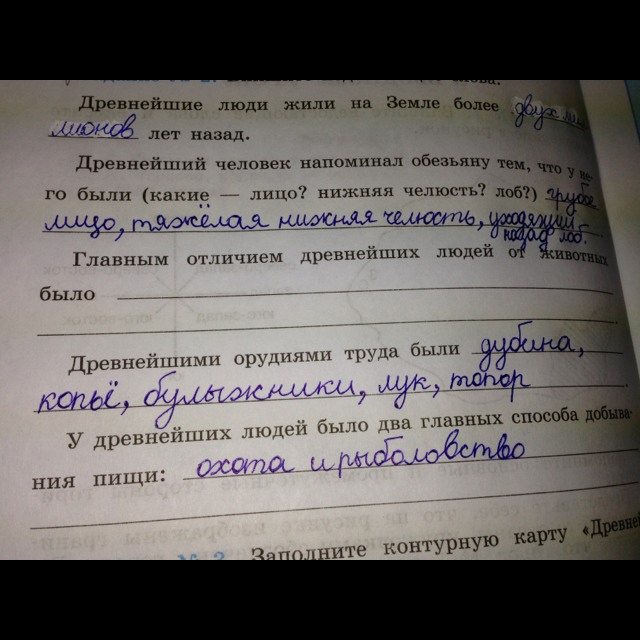 слова.
Древнейшие люди жили на Земле более двух мил
лионов лет назад.
Древнейший человек напоминал обезьяну тем, что у не-
го были (какие — лицо? нижняя челюсть? лоб?) грубое
лицо, тяжёлая нижняя челюсть, уходящий
назад лоб.
Главным отличием древнейших людей от животных
было
Древнейшими орудиями труда были дубина,
копьё, булыжники, лук, топор
У древнейших людей было два главных способа добыва-
ния пищи: охота и рыболовство
№ 3. Заполните контурную карту «Древней